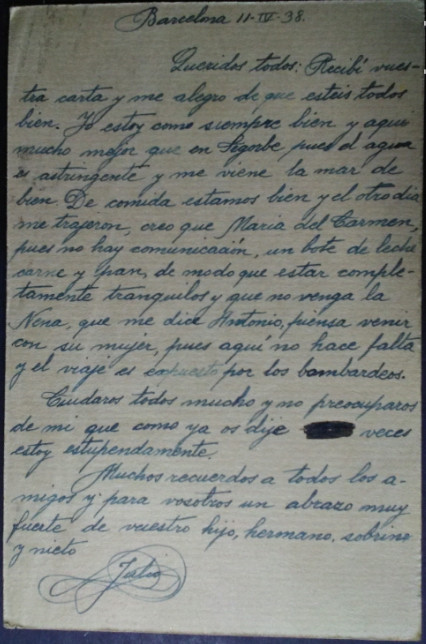 Barcelona 11-IV-38.
Queridos todos: Recibí vues-
tra carta y me alegro de que esteis todos
bien. Yo estoy como siempre bien y aqui
mucho mejor que en Segorbe pues el agua
es astringente y me viene la mar de
bien. De comida estamos bien y el otro dia
me trajeron, creo que Maria del Carmen,
pues no hay comunicación, un bote de leche
carne y pan, de modo que estar comple-
tamente tranquilos y que no venga la
Nena, que me dice Antonio, piensa venir
con su mujer, pues aquí no hace falta
y el viaje es expuesto por los bombardeos.
Cuidaros todos mucho y no preocuparos
de mi que como ya os dije veces
estoy estupendamente.
Muchos recuerdos a todos los a-
migos y para vosotros un abrazo muy
fuerte de vuestro hijo, hermano, sobrino
y nieto